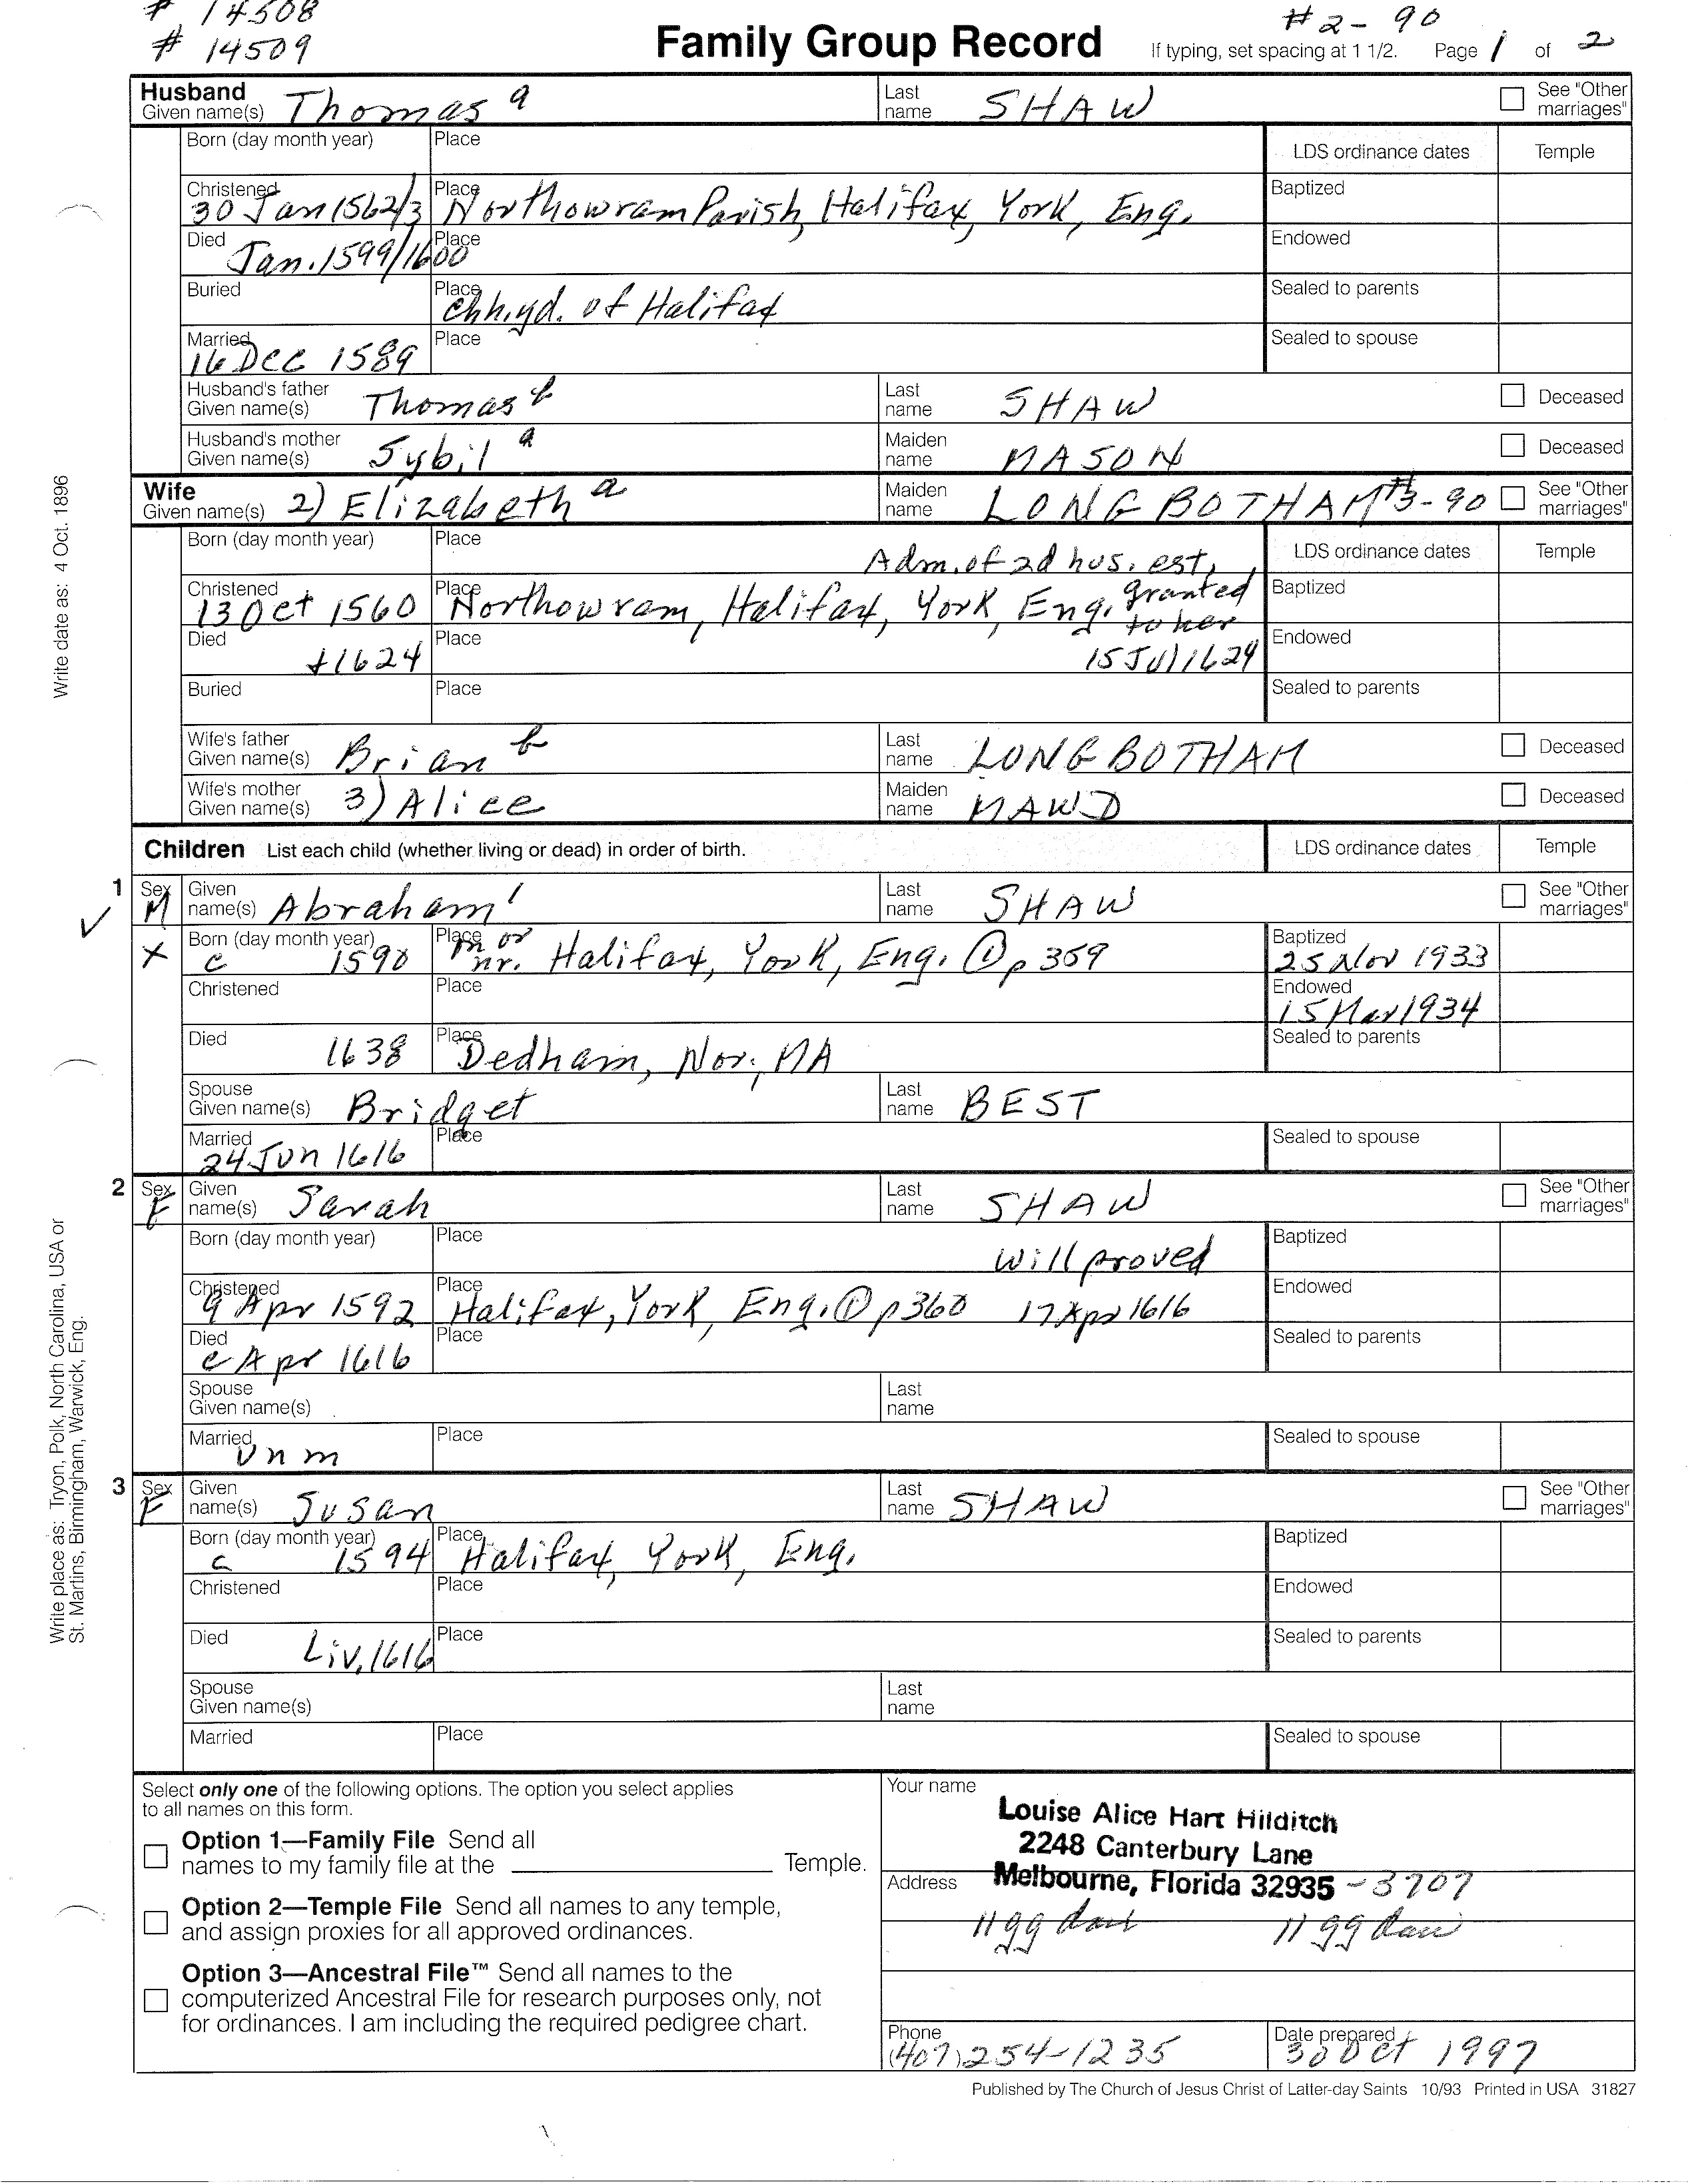 # 14508
# 14509
Family Group Record
#2-90
If typing, set spacing at 1 1/2. Page 1 of 2
Husband
Given name(s) Thomas a
Last name SHAW
See "Other marriages"
Born (day month year) Place
LDS ordinance dates Temple
Christened 30 Jan 1562/3 Place Northowram Parish, Halifax, York, Eng.
Baptized
Died Jan. 1599/1600 Place
Endowed
Buried Place Chh.yd. of Halifax
Sealed to parents
Married 16 Dec 1589 Place
Sealed to spouse
Husband's father
Given name(s) Thomas b
Last name SHAW
Deceased
Husband's mother
Given name(s) Sybil a
Maiden name MASON
Deceased
Wife
Given name(s) 2) Elizabeth a
Maiden name LONGBOTHAM #3-90
See "Other marriages"
Born (day month year) Place
Adm. of 2d hus. est,
LDS ordinance dates Temple
Christened 13 Oct 1560 Place Northowram, Halifax, York, Eng. granted
to her
Baptized
Died +1624 Place 15 Jul 1624
Endowed
Buried Place
Sealed to parents
Wife's father
Given name(s) Brian b
Last name LONGBOTHAM
Deceased
Wife's mother
Given name(s) 3) Alice
Maiden name MAWD
Deceased
Children List each child (whether living or dead) in order of birth.
LDS ordinance dates Temple
1 Sex M Given name(s) Abraham 1
Last name SHAW
See "Other marriages"
Born (day month year) c 1590 Place in or nr. Halifax, York, Eng. ① p 359
Baptized 25 Nov 1933
Christened Place
Endowed 15 Mar 1934
Died 1638 Place Dedham, Nor., MA
Sealed to parents
Spouse
Given name(s) Bridget
Last name BEST
Married 24 Jun 1616 Place
Sealed to spouse
2 Sex F Given name(s) Sarah
Last name SHAW
See "Other marriages"
Born (day month year) Place
Will proved
Baptized
Christened 9 Apr 1592 Place Halifax, York, Eng. ① p360 17 Apr 1616
Endowed
Died c Apr 1616 Place
Sealed to parents
Spouse
Given name(s)
Last name
Married Unm Place
Sealed to spouse
3 Sex F Given name(s) Susan
Last name SHAW
See "Other marriages"
Born (day month year) c 1594 Place Halifax, York, Eng.
Baptized
Christened Place
Endowed
Died Liv. 1616 Place
Sealed to parents
Spouse
Given name(s)
Last name
Married Place
Sealed to spouse
Write date as: 4 Oct. 1896
Write place as: Tryon, Polk, North Carolina, USA or
St. Martins, Birmingham, Warwick, Eng.
Select only one of the following options. The option you select applies
to all names on this form.
Option 1—Family File Send all
names to my family file at the Temple.
Option 2—Temple File Send all names to any temple,
and assign proxies for all approved ordinances.
Option 3—Ancestral File™ Send all names to the
computerized Ancestral File for research purposes only, not
for ordinances. I am including the required pedigree chart.
Your name
Louise Alice Hart Hilditch
2248 Canterbury Lane
Address Melbourne, Florida 32935 -3707
11 gg dau 11 gg dau
Phone (407) 254-1235
Date prepared 30 Oct 1997
Published by The Church of Jesus Christ of Latter-day Saints 10/93 Printed in USA 31827